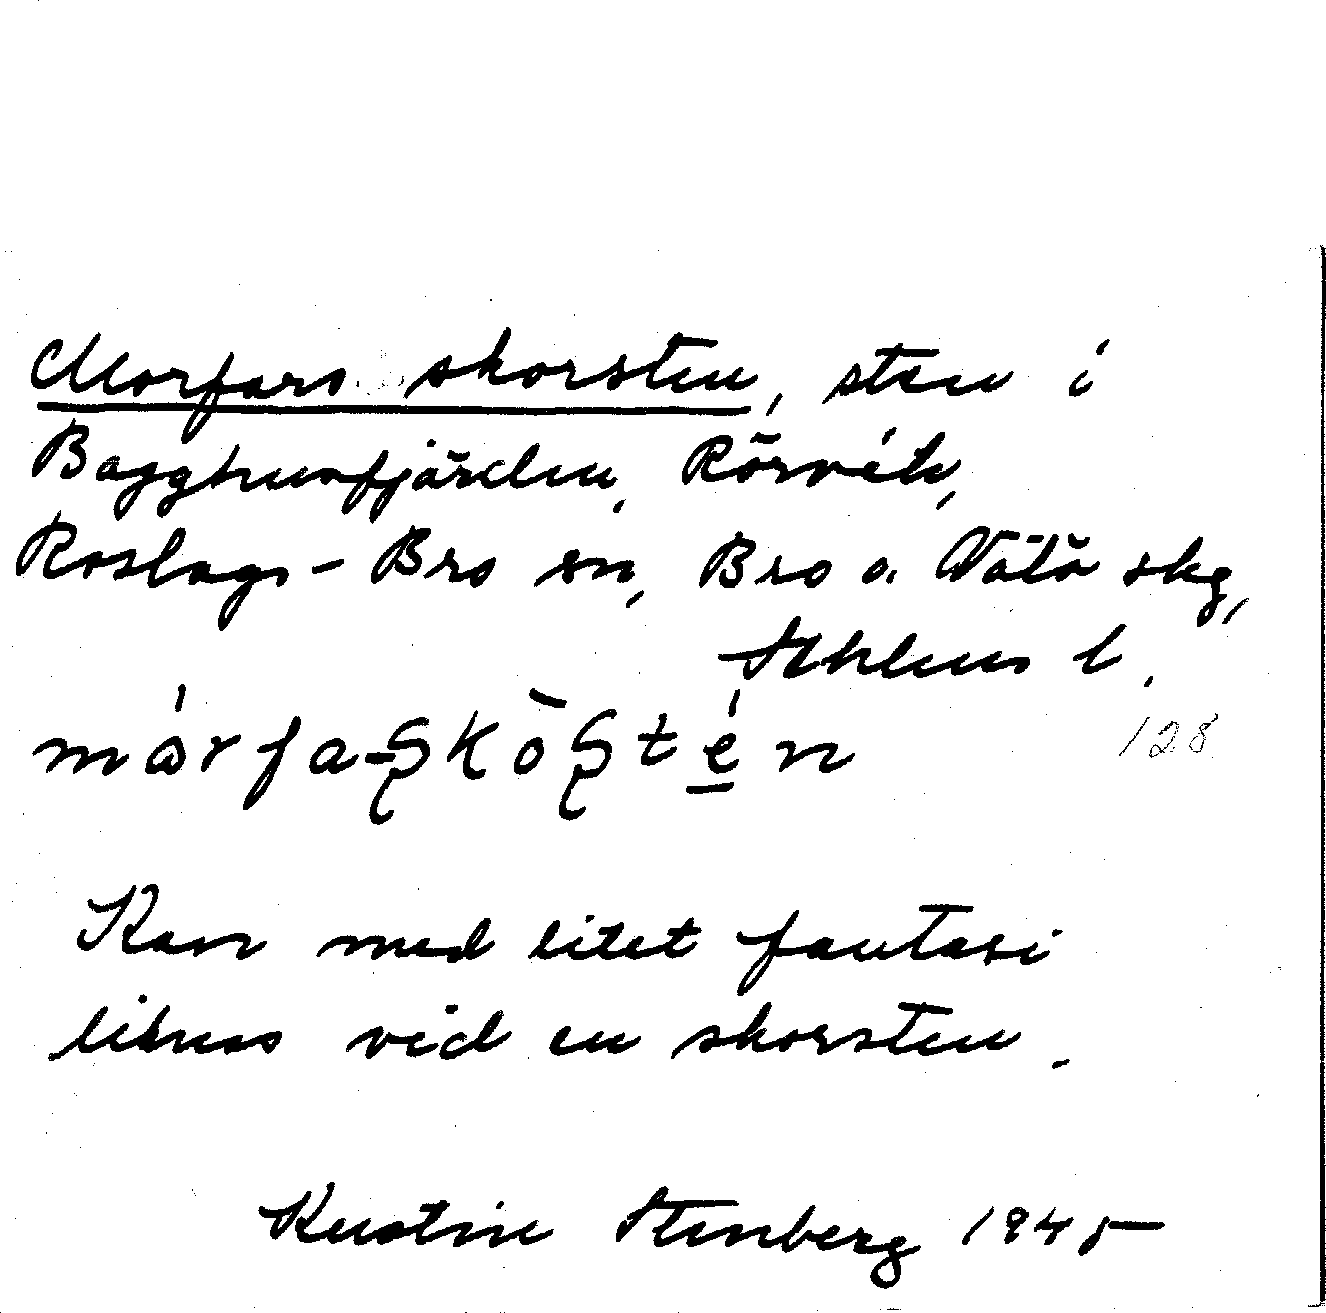 Morfars skorsten, sten i
Bagghusfjärden, Rörvik,
Roslags-Bro sn, Bro o. Vätö skg,
Sthlms l.
128
Kan med litet fantasi
liknas vid en skorsten.
Kerstin Stenberg 1945